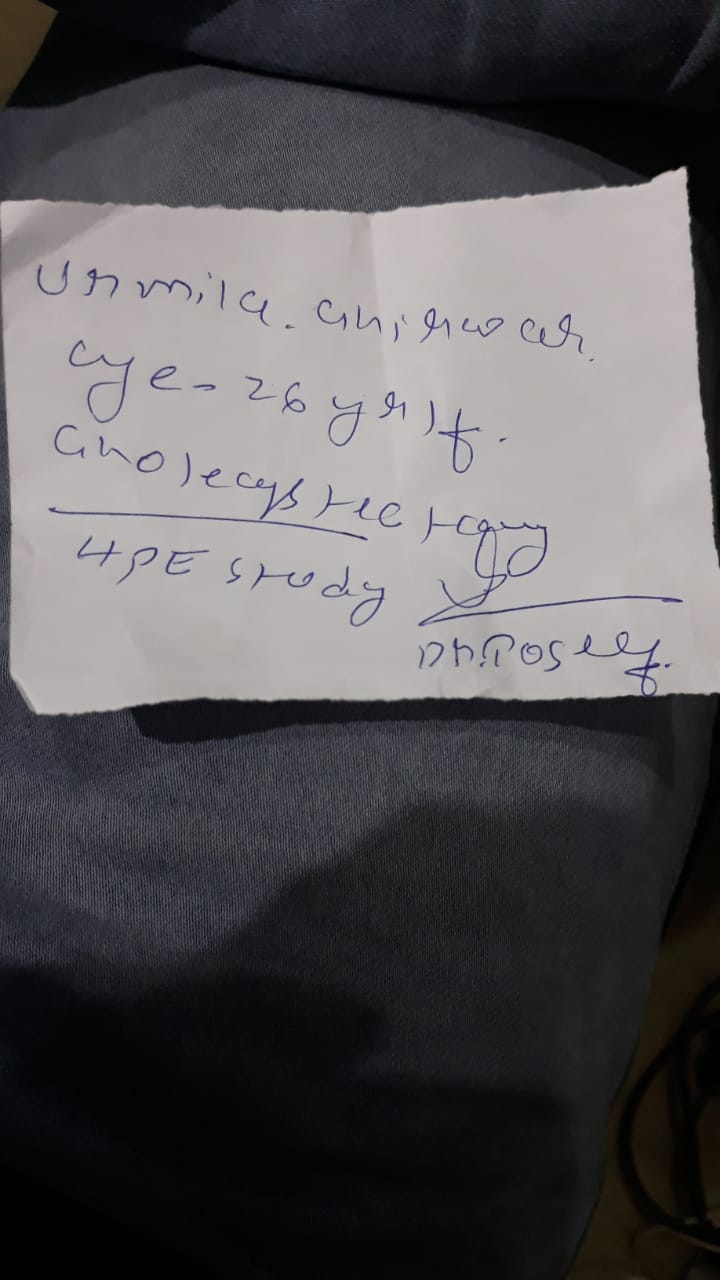 Urmila. Ahirwar.
Age - 26 yr / f.
Cholecystectomy
HPE study
Dr.